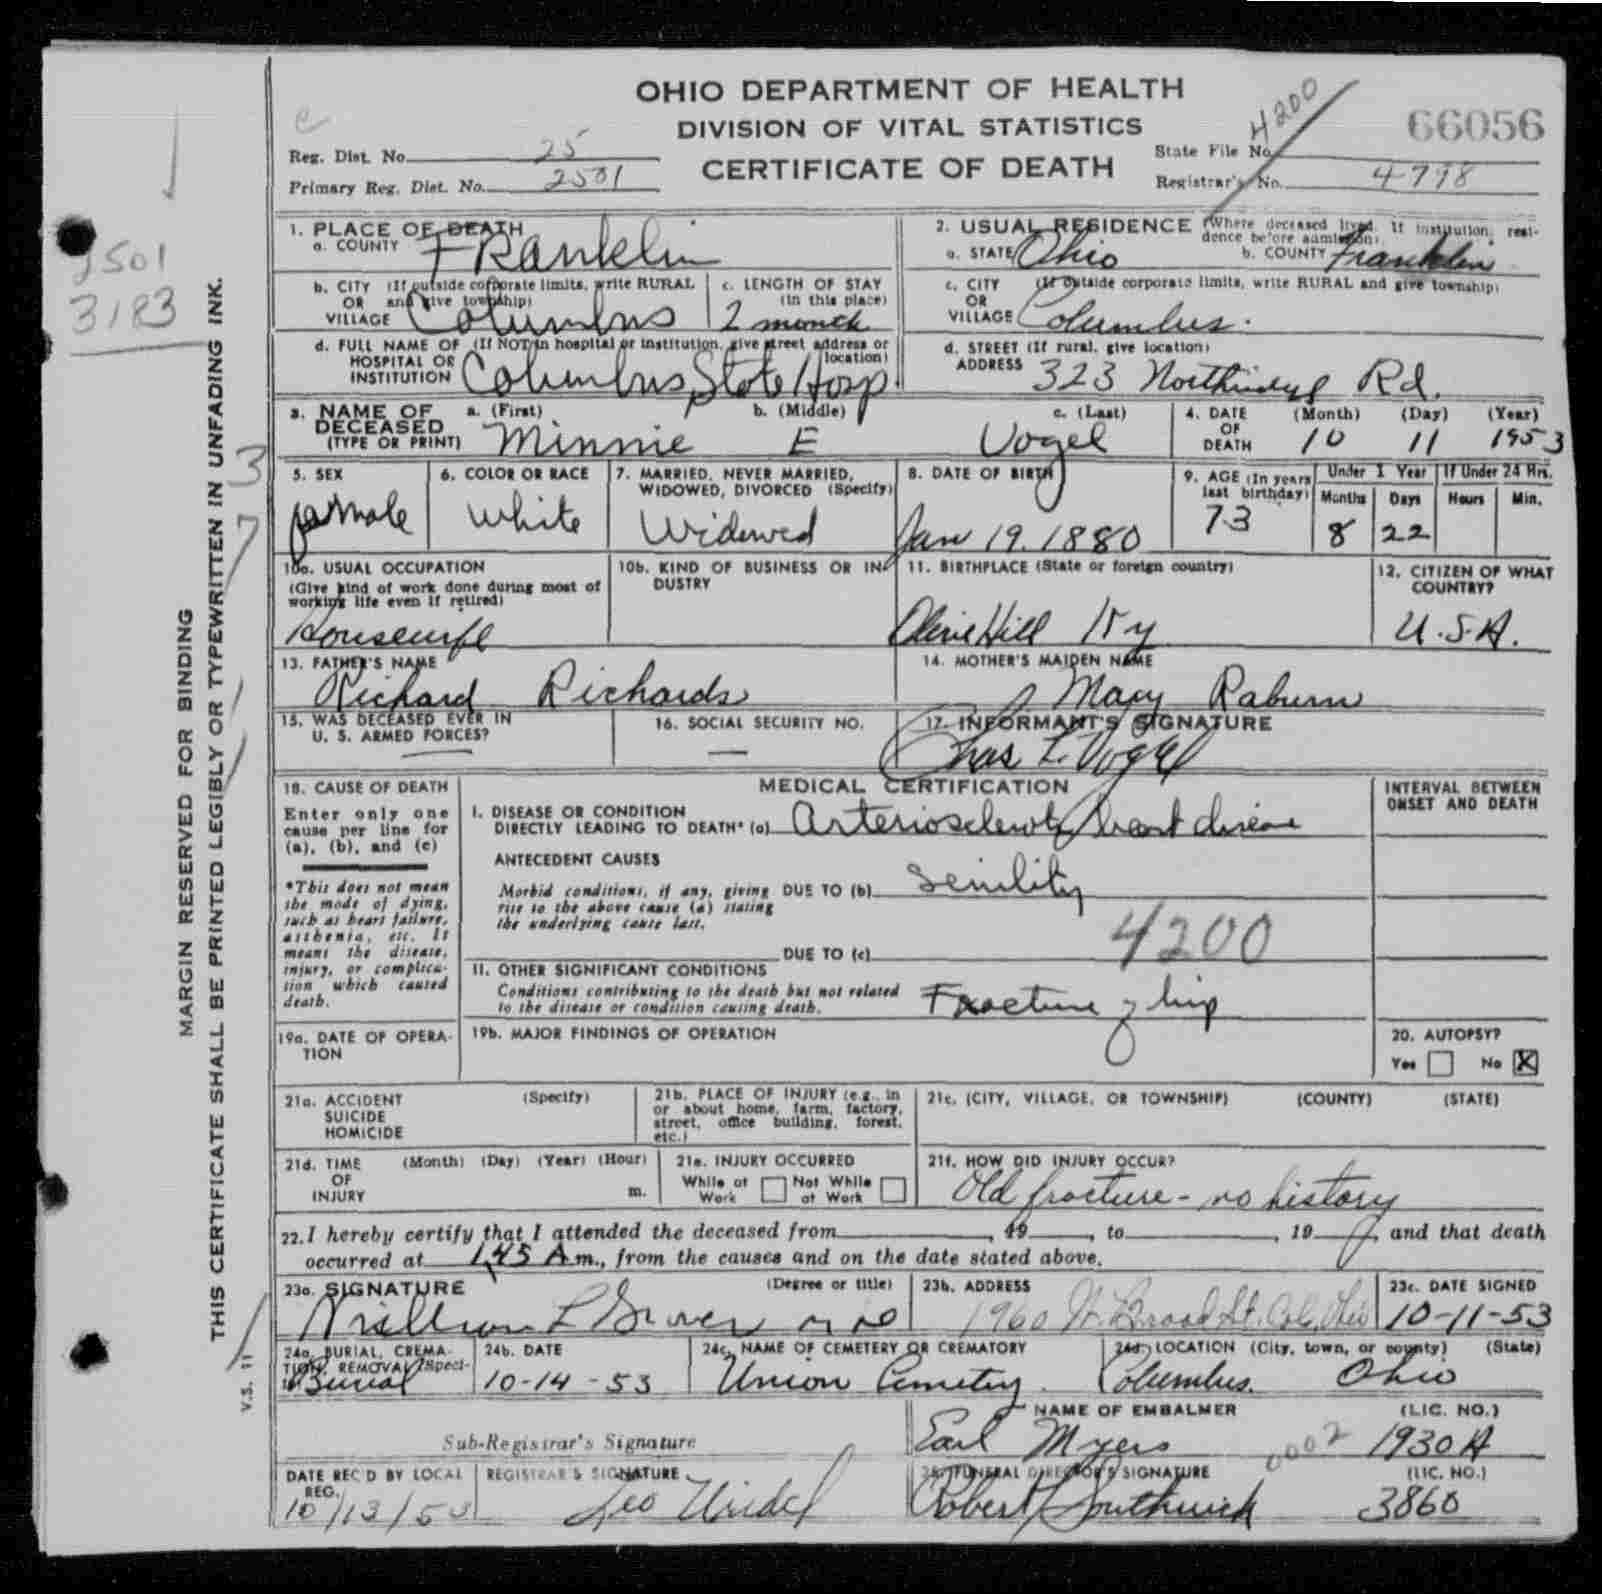 OHIO DEPARTMENT OF HEALTH
DIVISION OF VITAL STATISTICS
CERTIFICATE OF DEATH
Reg. Dist. No. 25
Primary Reg. Dist. No. 2501
4200
66056
State File No.
Registrar's No. 4798
2501
3183
MARGIN RESERVED FOR BINDING
THIS CERTIFICATE SHALL BE PRINTED LEGIBLY OR TYPEWRITTEN IN UNFADING INK.
V.S. 11
1. PLACE OF DEATH
a. COUNTY Franklin
b. CITY (If outside corporate limits, write RURAL
OR and give township)
VILLAGE Columbus
c. LENGTH OF STAY
(in this place)
2 month
d. FULL NAME OF (If NOT in hospital or institution, give street address or
HOSPITAL OR location)
INSTITUTION Columbus State Hosp.
2. USUAL RESIDENCE (Where deceased lived. If institution: resi-
dence before admission).
a. STATE Ohio b. COUNTY Franklin
c. CITY (If outside corporate limits, write RURAL and give township)
OR
VILLAGE Columbus.
d. STREET (If rural, give location)
ADDRESS 323 Rd.
3. NAME OF a. (First) b. (Middle) c. (Last)
DECEASED
(TYPE OR PRINT) Minnie E Vogel
4. DATE (Month) (Day) (Year)
OF
DEATH 10 11 1953
5. SEX
female
6. COLOR OR RACE
White
7. MARRIED, NEVER MARRIED,
WIDOWED, DIVORCED (Specify)
Widowed
8. DATE OF BIRTH
Jan 19. 1880
9. AGE (In years
last birthday)
73
Under 1 Year
Months Days
8 22
If Under 24 Hrs.
Hours Min.
10a. USUAL OCCUPATION
(Give kind of work done during most of
working life even if retired)
Housewife
10b. KIND OF BUSINESS OR IN-
DUSTRY
11. BIRTHPLACE (State or foreign country)
Olive Hill Ky
12. CITIZEN OF WHAT
COUNTRY?
U.S.A.
13. FATHER'S NAME
Richard Richards
14. MOTHER'S MAIDEN NAME
Mary Raburn
15. WAS DECEASED EVER IN
U. S. ARMED FORCES?
—
16. SOCIAL SECURITY NO.
—
17. INFORMANT'S SIGNATURE
Chas L. Vogel
18. CAUSE OF DEATH
Enter only one
cause per line for
(a), (b), and (c)
*This does not mean
the mode of dying,
such as heart failure,
asthenia, etc. It
means the disease,
injury, or complica-
tion which caused
death.
MEDICAL CERTIFICATION
INTERVAL BETWEEN
ONSET AND DEATH
I. DISEASE OR CONDITION
DIRECTLY LEADING TO DEATH* (a) Arteriosclerotic heart disease
ANTECEDENT CAUSES
Morbid conditions, if any, giving DUE TO (b) Senility
rise to the above cause (a) stating
the underlying cause last.
4200
DUE TO (c)
II. OTHER SIGNIFICANT CONDITIONS
Conditions contributing to the death but not related
to the disease or condition causing death.
Fracture of hip
19a. DATE OF OPERA-
TION
19b. MAJOR FINDINGS OF OPERATION
20. AUTOPSY?
Yes No X
21a. ACCIDENT (Specify)
SUICIDE
HOMICIDE
21b. PLACE OF INJURY (e.g., in
or about home, farm, factory,
street, office building, forest,
etc.)
21c. (CITY, VILLAGE, OR TOWNSHIP) (COUNTY) (STATE)
21d. TIME (Month) (Day) (Year) (Hour)
OF
INJURY m.
21e. INJURY OCCURRED
While at Not While
Work at Work
21f. HOW DID INJURY OCCUR?
Old fracture - no history
22. I hereby certify that I attended the deceased from , 19 , to , 19 , and that death
occurred at 1:45 A m., from the causes and on the date stated above.
23a. SIGNATURE (Degree or title)
23b. ADDRESS
1960 W. Broad St. Col. Ohio
23c. DATE SIGNED
10-11-53
24a. BURIAL, CREMA-
TION, REMOVAL (Speci-
Burial
24b. DATE
10-14-53
24c. NAME OF CEMETERY OR CREMATORY
Union Cemetery.
24d. LOCATION (City, town, or county) (State)
Columbus. Ohio
Sub-Registrar's Signature
NAME OF EMBALMER (LIC. NO.)
Earl Myers 0002 1930 A
DATE REC'D BY LOCAL
REG.
10/13/53
REGISTRAR'S SIGNATURE
Leo
25. FUNERAL DIRECTOR'S SIGNATURE (LIC. NO.)
Robert Southwick 3860